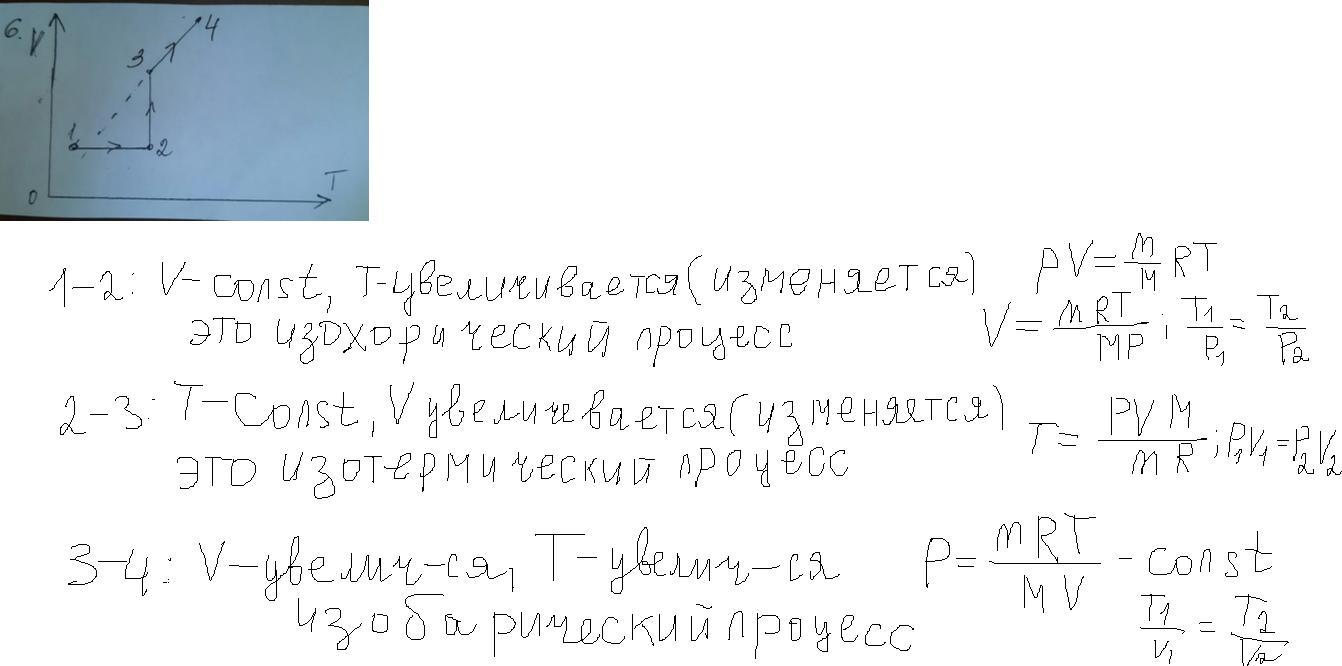 6. V
4
3
1
2
T
0
1-2: V-const, T-увеличивается (изменяется)
это изохорический процесс
PV = m/M RT
V = mRT/MP ; T₁/P₁ = T₂/P₂
2-3: T-const, V увеличевается (изменяется)
это изотермический процесс
T = PVM/mR ; P₁V₁ = P₂V₂
3-4: V-увелич-ся, T-увелич-ся
изобарический процесс
P = mRT/MV - const
T₁/V₁ = T₂/V₂